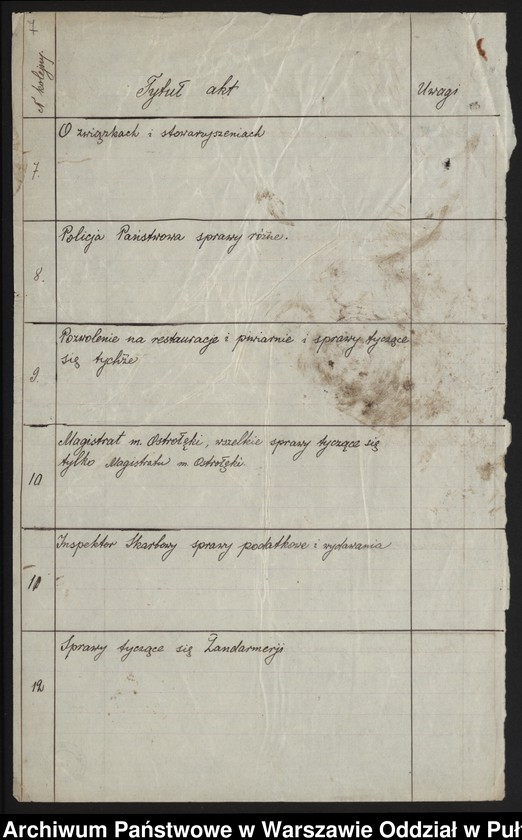 № kolejny.
Tytuł akt
Uwagi
7.
O związkach i stowarzyszeniach
8.
Policja Państwowa sprawy różne.
9.
Pozwolenie na restauracje i piwiarnie i sprawy tyczące
się tychże
10
Magistrat m. Ostrołęki, wszelkie sprawy tyczące się
tylko Magistratu m Ostrołęki.
11
Inspektor Skarbowy sprawy podatkowe i wydawania
12
Sprawy tyczące się Żandarmerji
Archiwum Państwowe w Warszawie Oddział w Puł